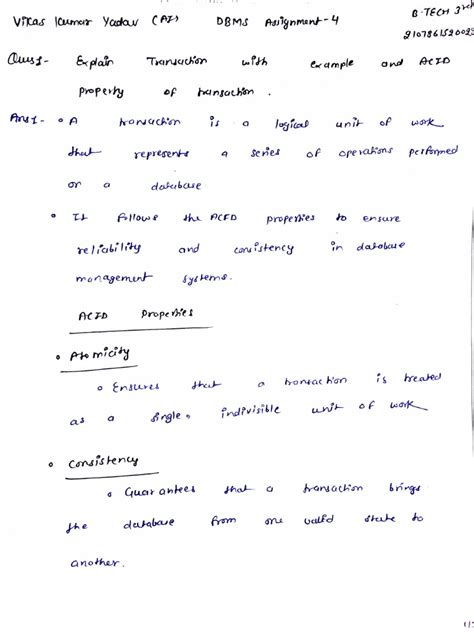 Vikas Kumar Yadav (AI) DBMS Assignment-4 B-TECH 3rd
Ques1- Explain Transaction with example and ACID
property of transaction.
Ans1- A transaction is a logical unit of work
that represents a series of operations performed
on a database
It follows the ACID properties to ensure
reliability and consistency in database
management systems.
ACID Properties
Atomicity
Ensures that a transaction is treated
as a single, indivisible unit of work
Consistency
Guarantees that a transaction brings
the database from one valid state to
another.